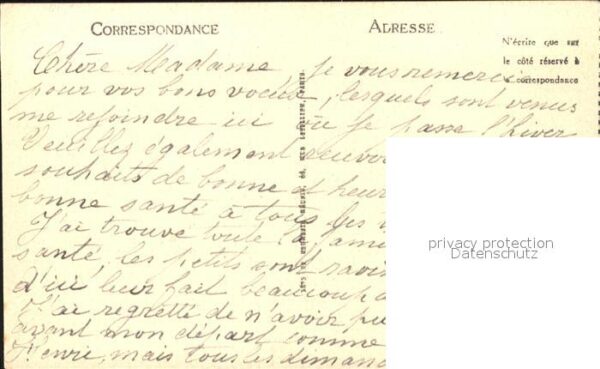 CORRESPONDANCE
ADRESSE
N'écrire que sur
le côté réservé à
la correspondance
Chère Madame, je vous remercie
pour vos bons voeux, lesquels sont venus
me rejoindre ici où je passe l'hiver
Veuillez également
souhaits de bonne et heur
bonne santé à tous les
J'ai trouve toute la fami
santé, les petits sont ravis
d'ici leur fait beaucoup
J'ai regretté de n'avoir pu
avant mon départ comme
J'envie, mais tous les dimanc
privacy protection
Datenschutz